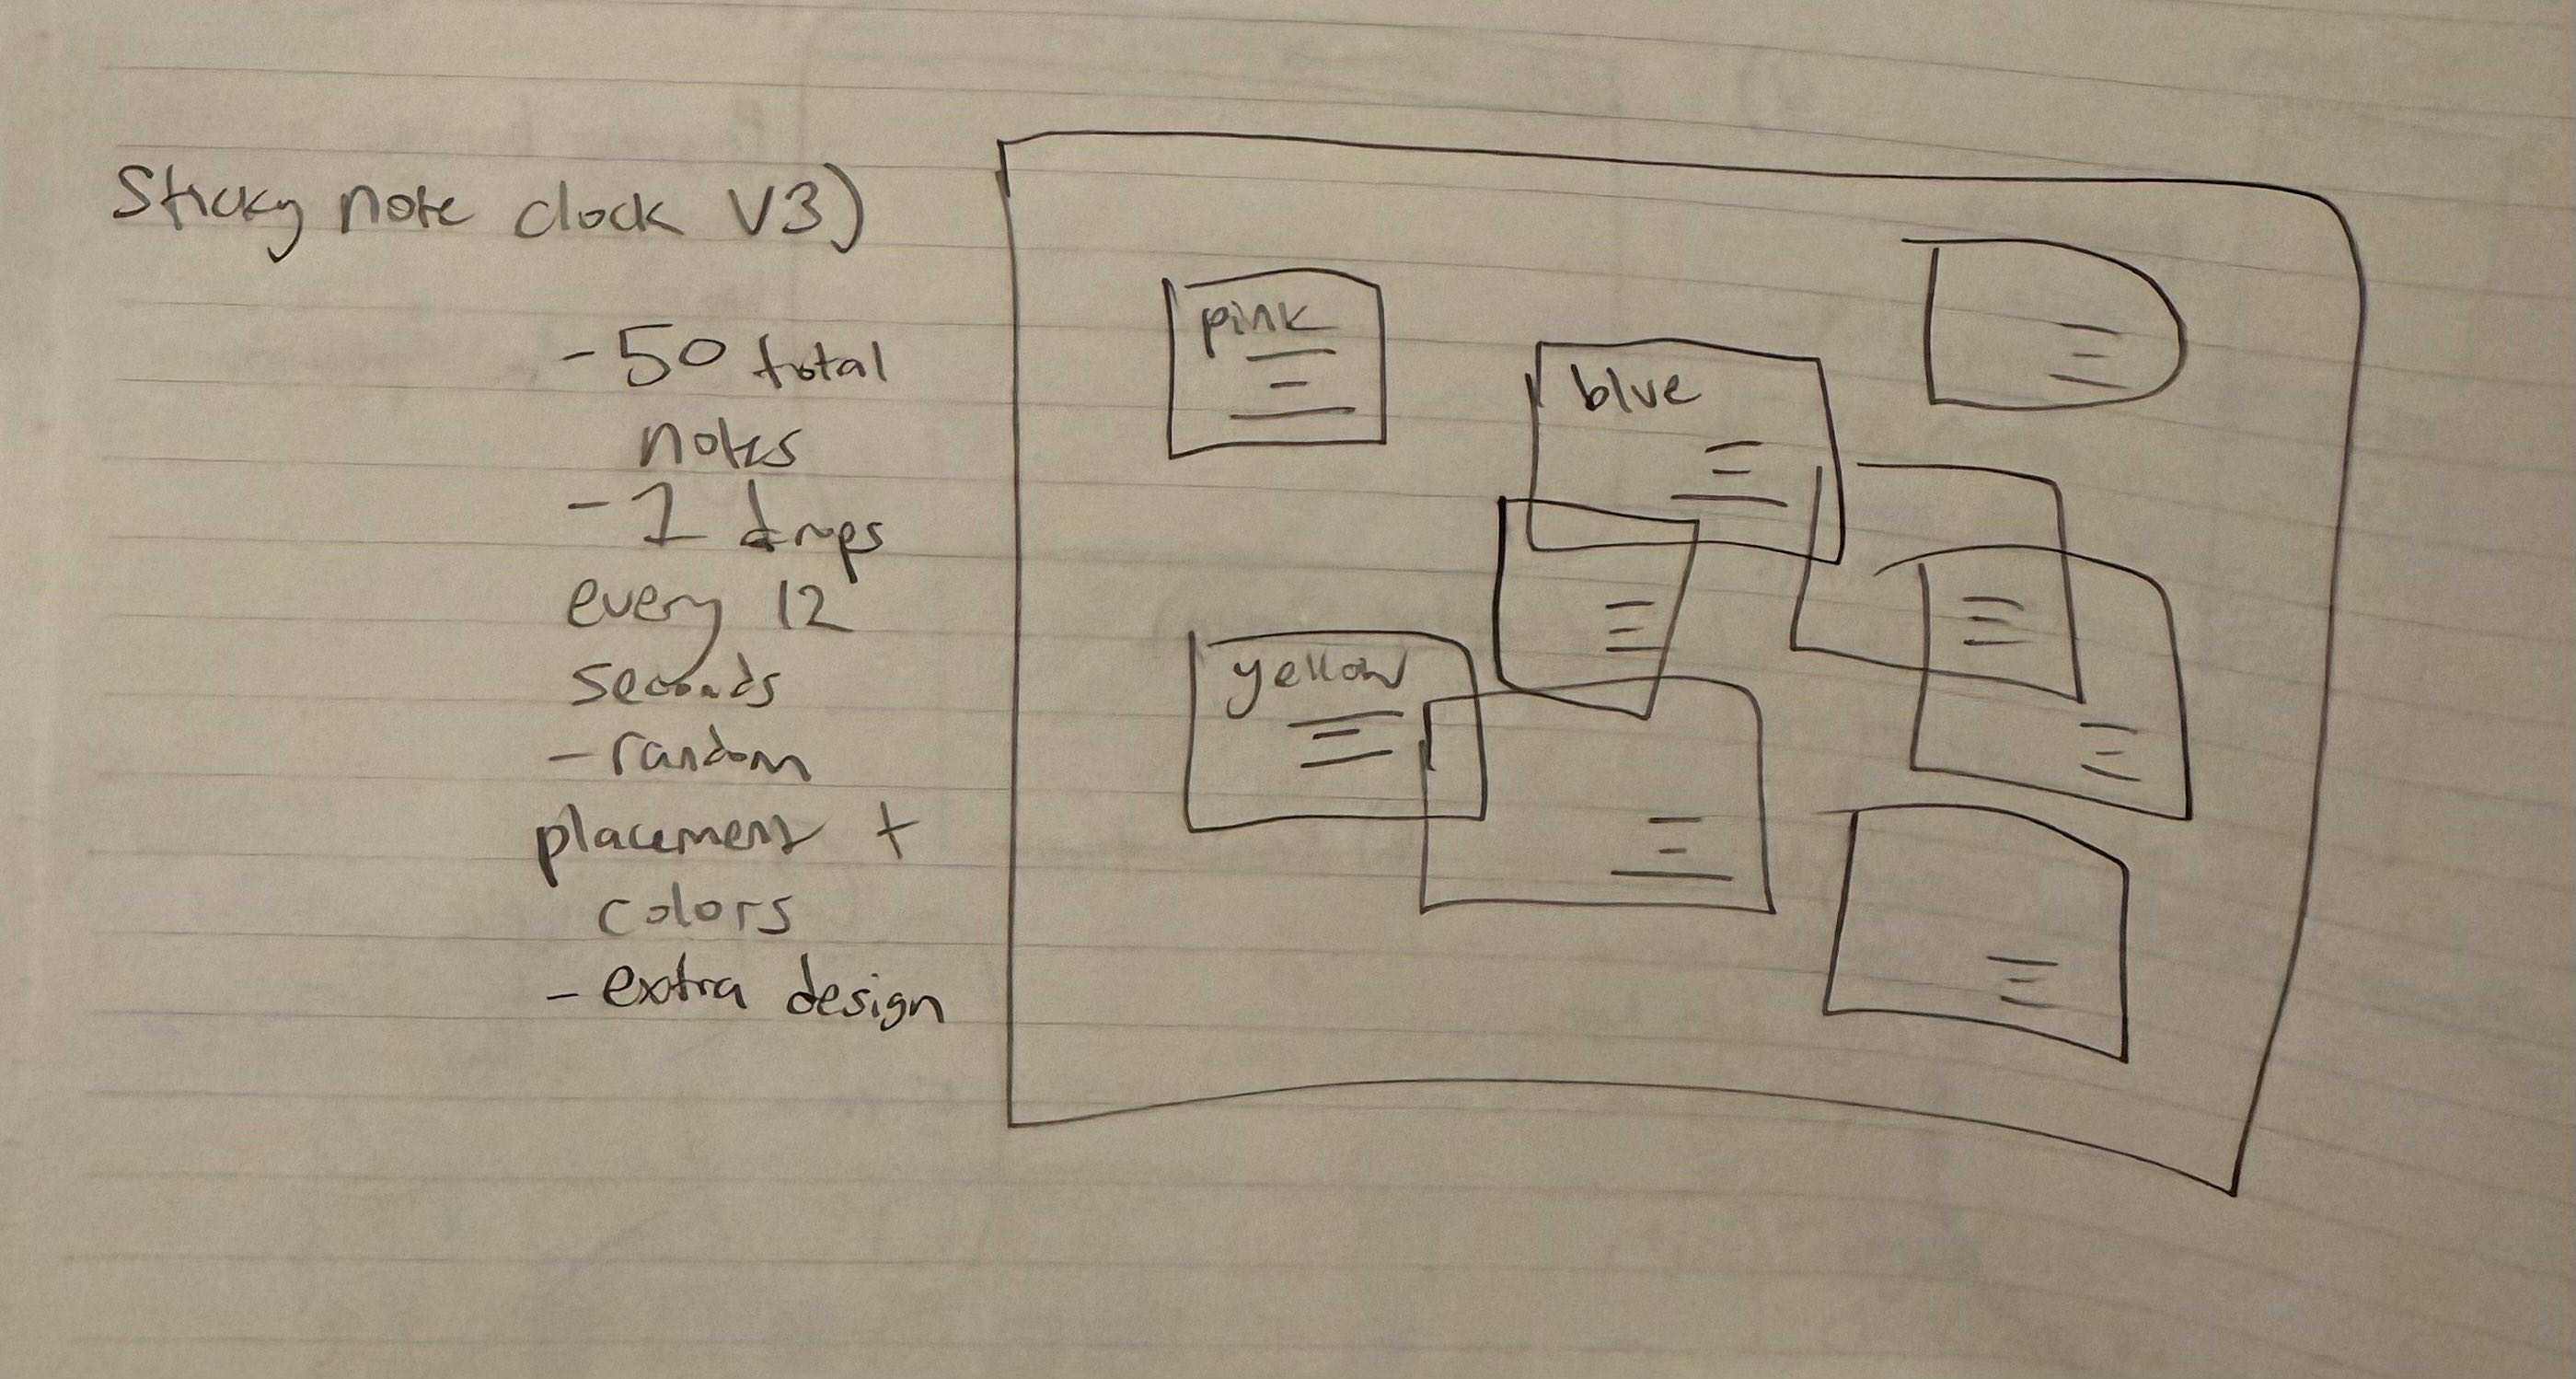 Sticky note clock V3)
- 50 total
notes
- 1 drops
every 12
seconds
- random
placement +
colors
- extra design
pink
blue
yellow